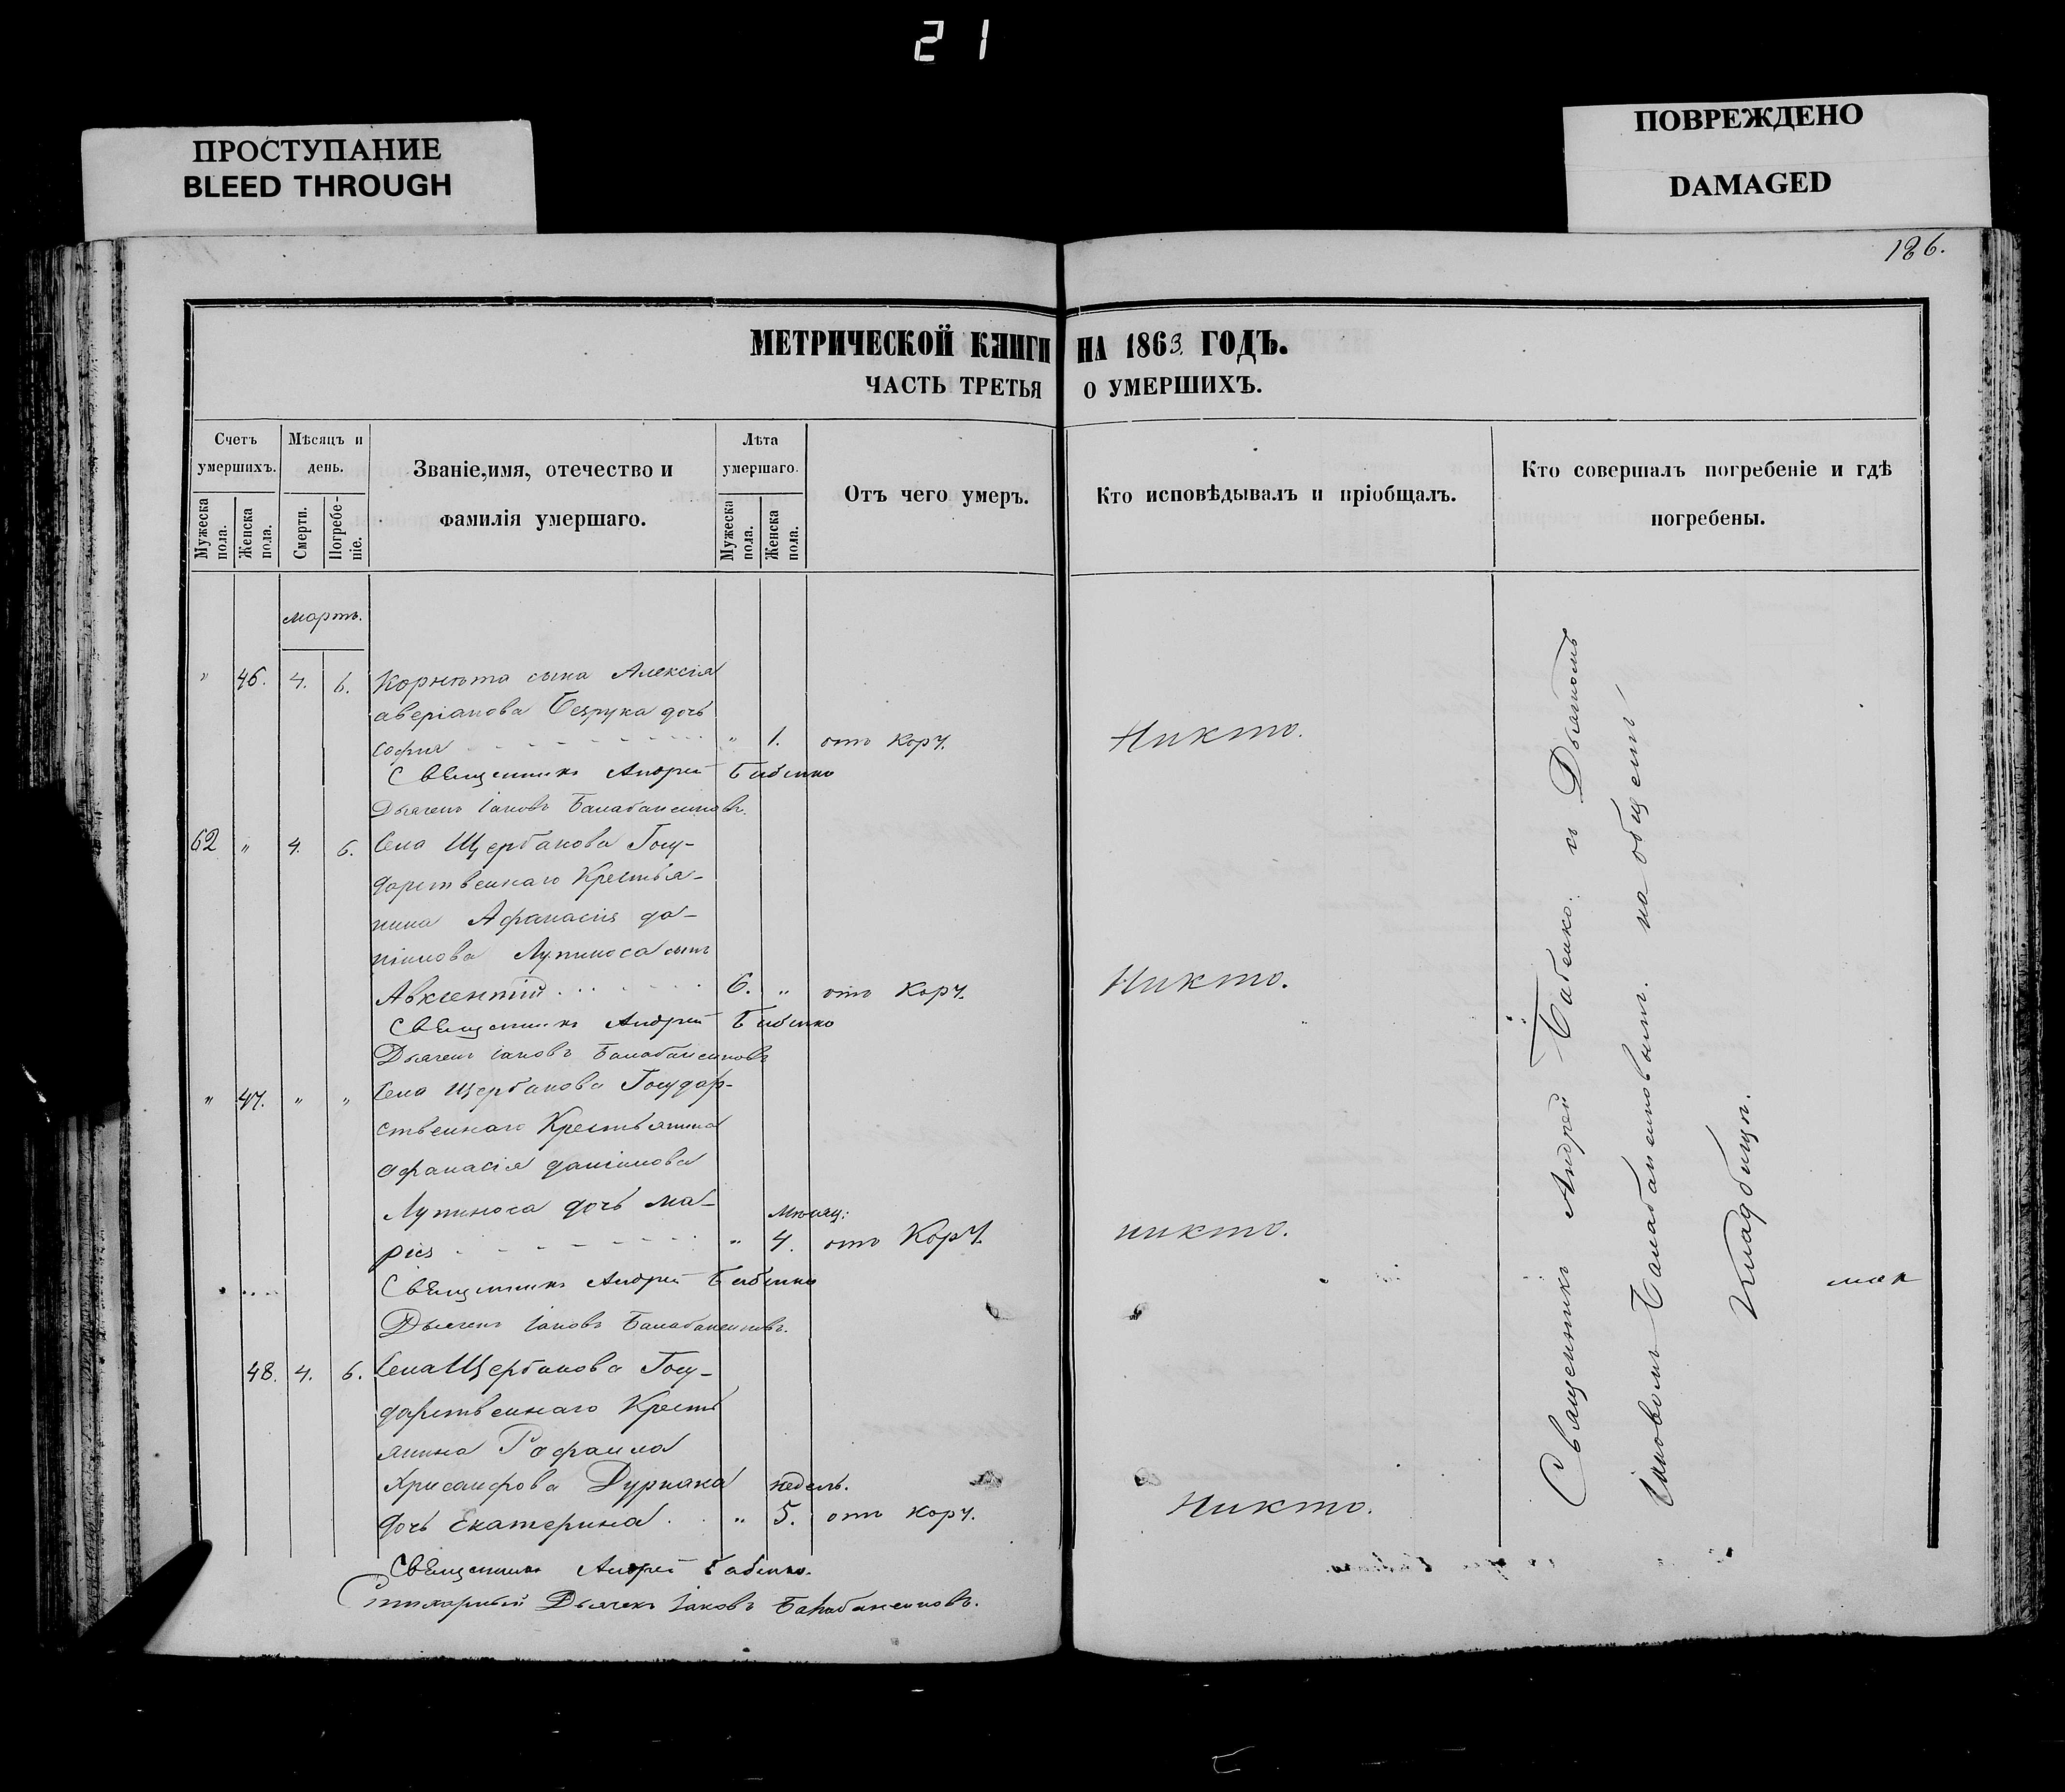 21
ПРОСТУПАНИЕ
BLEED THROUGH
ПОВРЕЖДЕНО
DAMAGED
186.
МЕТРИЧЕСКОЙ КНИГИ НА 1863. ГОДЪ.
ЧАСТЬ ТРЕТЬЯ О УМЕРШИХЪ.
Счетъ умершихъ.
Мужеска пола.
Женска пола.
Мѣсяцъ и день.
Смерти.
Погребеніе.
Званіе, имя, отечество и фамилія умершаго.
Лѣта умершаго.
Мужеска пола.
Женска пола.
Отъ чего умеръ.
Кто исповѣдывалъ и пріобщалъ.
Кто совершалъ погребеніе и гдѣ погребены.
мартъ.
" 46. 4. 6. Корнета сына Алексія
аверіанова Безрука дочь
софия " 1. отъ корч. Никто.
Священникъ Андрей Бабенко
Дьячекъ Іаковъ Балабансиновъ.
62 " 4. 6. Села Щербанова Госу-
дарственнаго Крестья-
нина Афанасия да-
ніилова Лупиноса сынъ
Авксентій 6. " отъ корч. Никто.
Священникъ Андрей Бабенко
Дьячекъ Іаковъ Балабансиновъ
" 47. " " Села Щербанова Государ-
ственнаго Крестьянина
афанасія даніилова
Лупиноса дочь Ма- Мѣсяц:
рия " 4. отъ Корч. никто.
Священникъ Андрей Бабенко
Дьячекъ Іаковъ Балабансиновъ.
48. 4. 6. Села Щербанова Госу-
дарственнаго Кресть
янина Рафаила
Хрисанфова Дурняка недель.
дочь Екатерина " 5. отъ корч. Никто.
Священникъ Андрей Бабенко.
Стихарный Дьячекъ Іаковъ Балабансиновъ.
Священникъ Андрей Бабенко. съ Дьячкомъ
Іаковомъ Балабансиновымъ. на общемъ
Кладбищѣ.